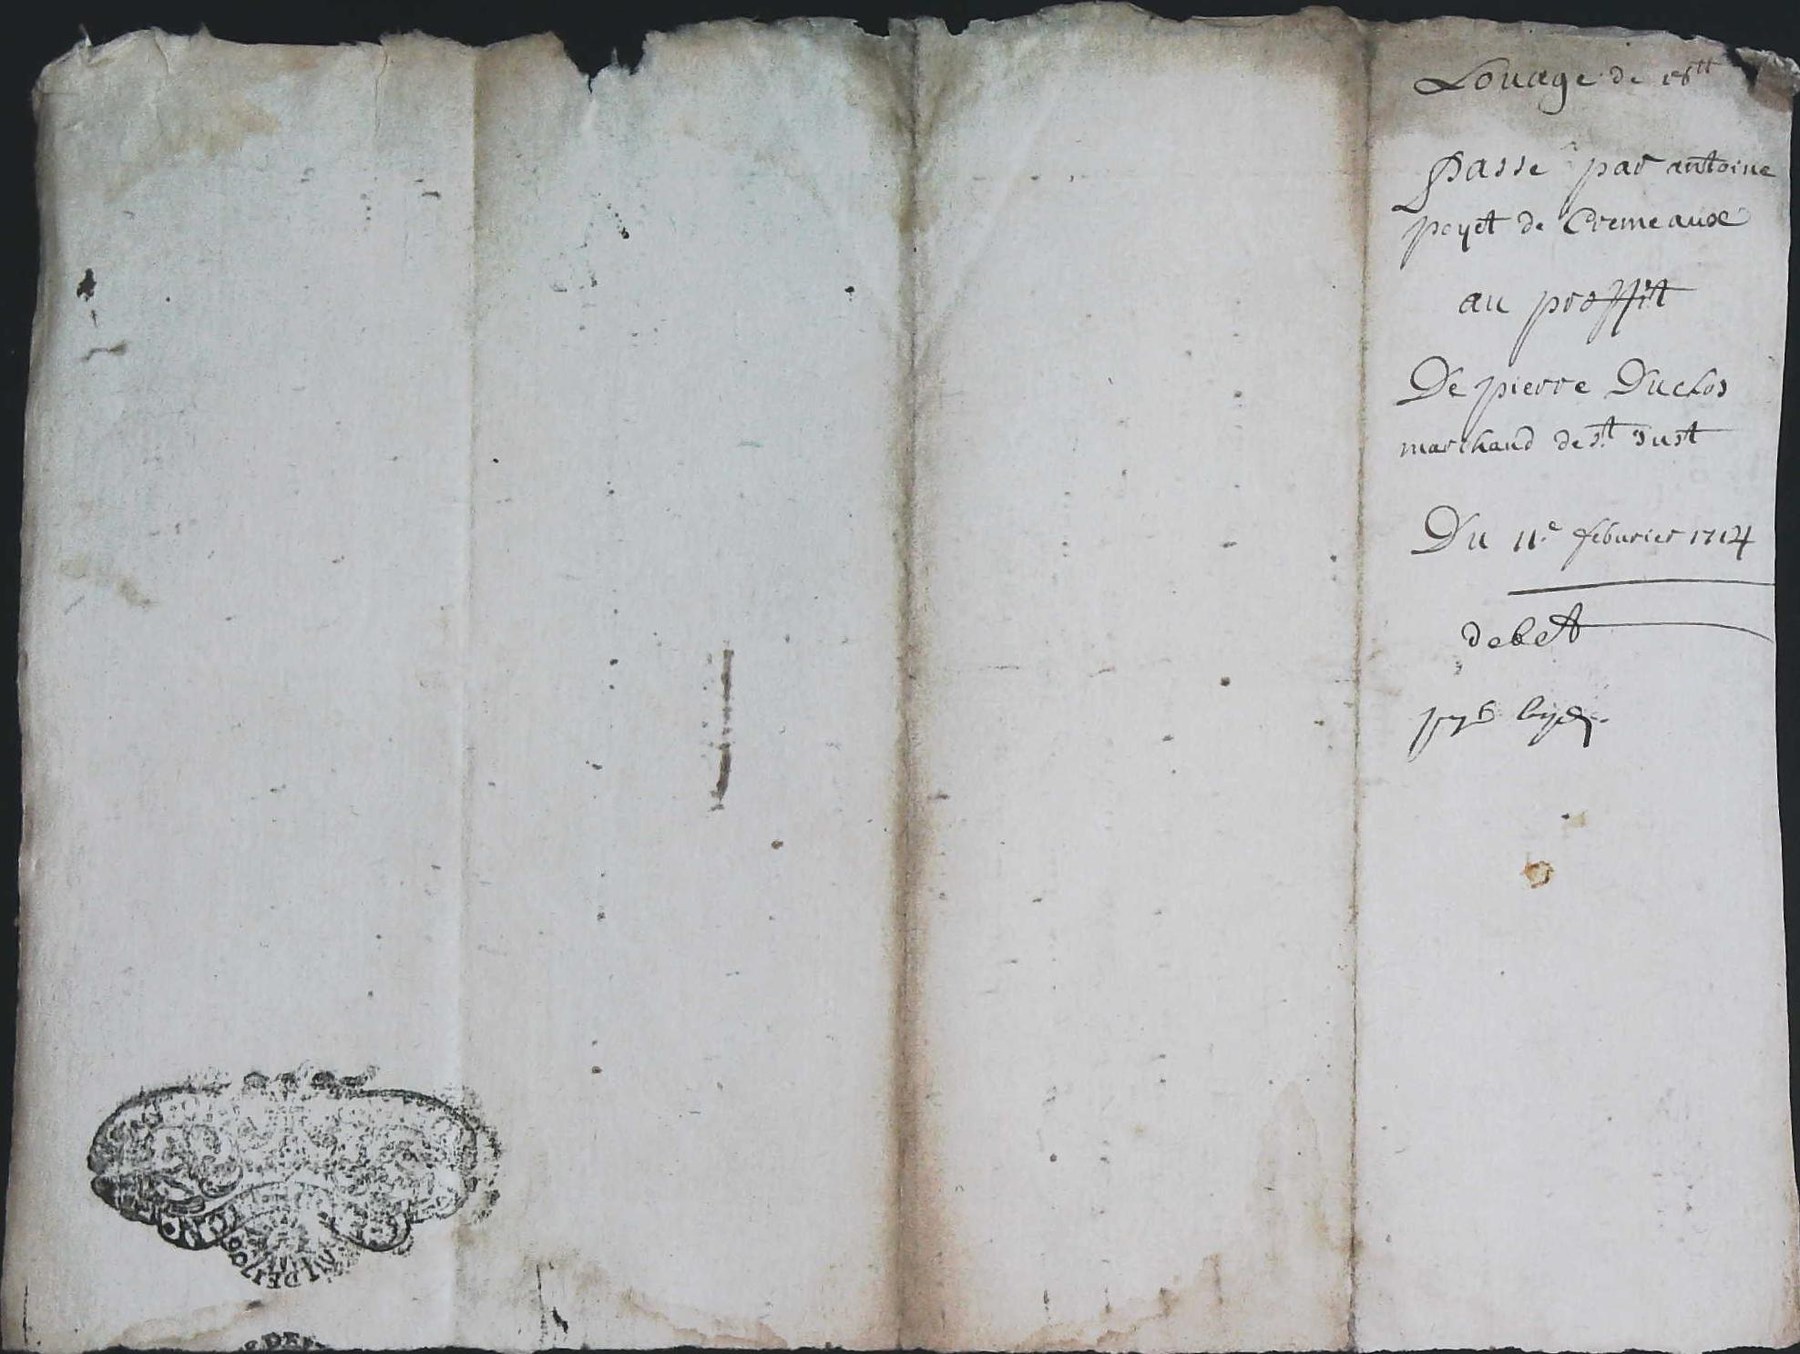 Louage de 18tt
Passé par antoine
poyet de Cremeaux
au proffit
De pierre Duclos
marchand de st Just
Du 11.e feburier 1714
debet